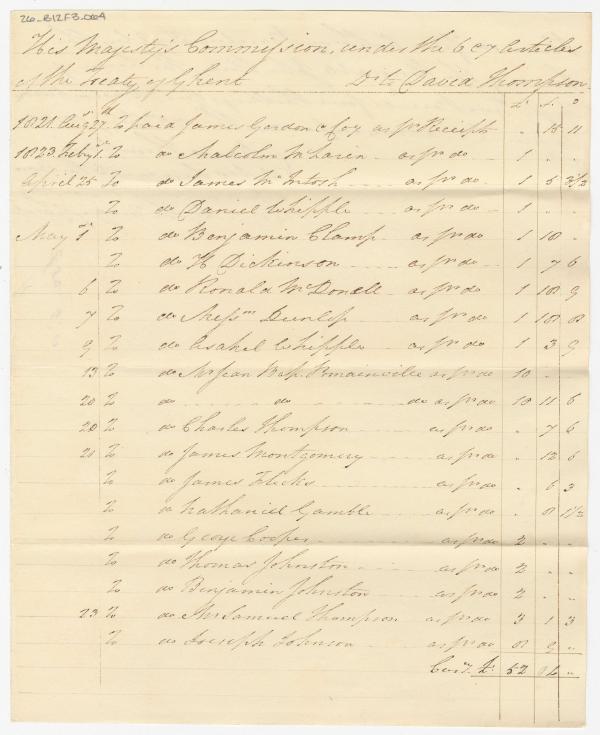 26_B12F3_004
His Majesty's Commission, under the 6 & 7 articles
of the Treaty of Ghent Dr to David Thompson
£ s. D
1821. Augt 27th To paid James Gordon & Coy as pr Receipt " 15 11
1823. Feby 1st To do Malcolm McLaren as pr do 1 " "
April 25 To do James McIntosh as pr do 1 5 3 1/2
To do Daniel Whipple as pr do 1 " "
May 1st To do Benjamin Clamp as pr do 1 10 "
To do H Dickinson as pr do 1 7 6
6 To do Ronald McDonell as pr do 1 18 9
7 To do Dunlop as pr do 1 18 8
9 To do Asahel Whipple as pr do 1 3 9
13 To do Mr Jean Bap. Romainville as pr do 10 " "
20 To do do do as pr do 10 11 6
20 To do Charles Thompson as pr do " 7 6
21 To do James Montgomery as pr do " 12 6
To do James as pr do " 6 3
To do Nathaniel Gamble as pr do " 8 1 1/2
To do George Cooper as pr do 2 " "
To do Thomas Johnston as pr do 2 " "
To do Benjamin Johnston as pr do 2 " "
23 To do Mr Samuel Thompson as pr do 3 1 3
To do Joseph Johnson as pr do 8 9 "
£ 52 "